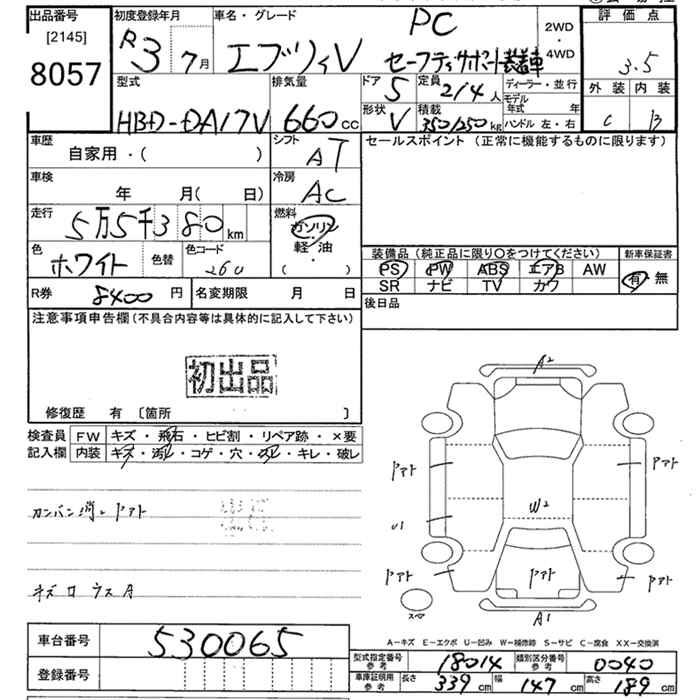 出品番号
[2145]
8057
初度登録年月
R3 7月
車名・グレード
エブリィV
PC
セーフティサポート装着車
2WD
・
4WD
評価点
3.5
外装 内装
C B
型式
HBD-DA17V
排気量
660 CC
ドア 5
形状 V
定員 2/4 人
積載 350/250 kg
ディーラー・並行
モデル
年式 年
ハンドル 左・右
車歴
自家用・( )
シフト
AT
車検
年 月(日)
冷房
AC
走行
5万5千380 km
燃料
ガソリン
軽・油
( )
色
ホワイト
色替
色コード
26U
セールスポイント (正常に機能するものに限ります)
装備品 (純正品に限り○をつけてください)
PS PW ABS エアB AW
SR ナビ TV カワ
新車保証書
有・無
R券 8400 円
名変期限 月 日
後日品
注意事項申告欄 (不具合内容等は具体的に記入して下さい)
初出品
修復歴 有 [箇所 ]
検査員
記入欄
FW キズ・飛石・ヒビ割・リペア跡・×要
内装 キズ・汚レ・コゲ・穴・スレ・キレ・破レ
カンバン消シ トアト
キズ ロ ウス A
A2
トアト
トアト
U1
W2
トアト
トアト
トアト
A1
スペア
A-キズ E-エクボ U-凹み W-補修跡 S-サビ C-腐食 XX-交換済
車台番号 530065
登録番号
型式指定番号
参考
18014
類別区分番号
参考
0040
車庫証明用
参考
長さ 339 cm 幅 147 cm 高さ 189 cm